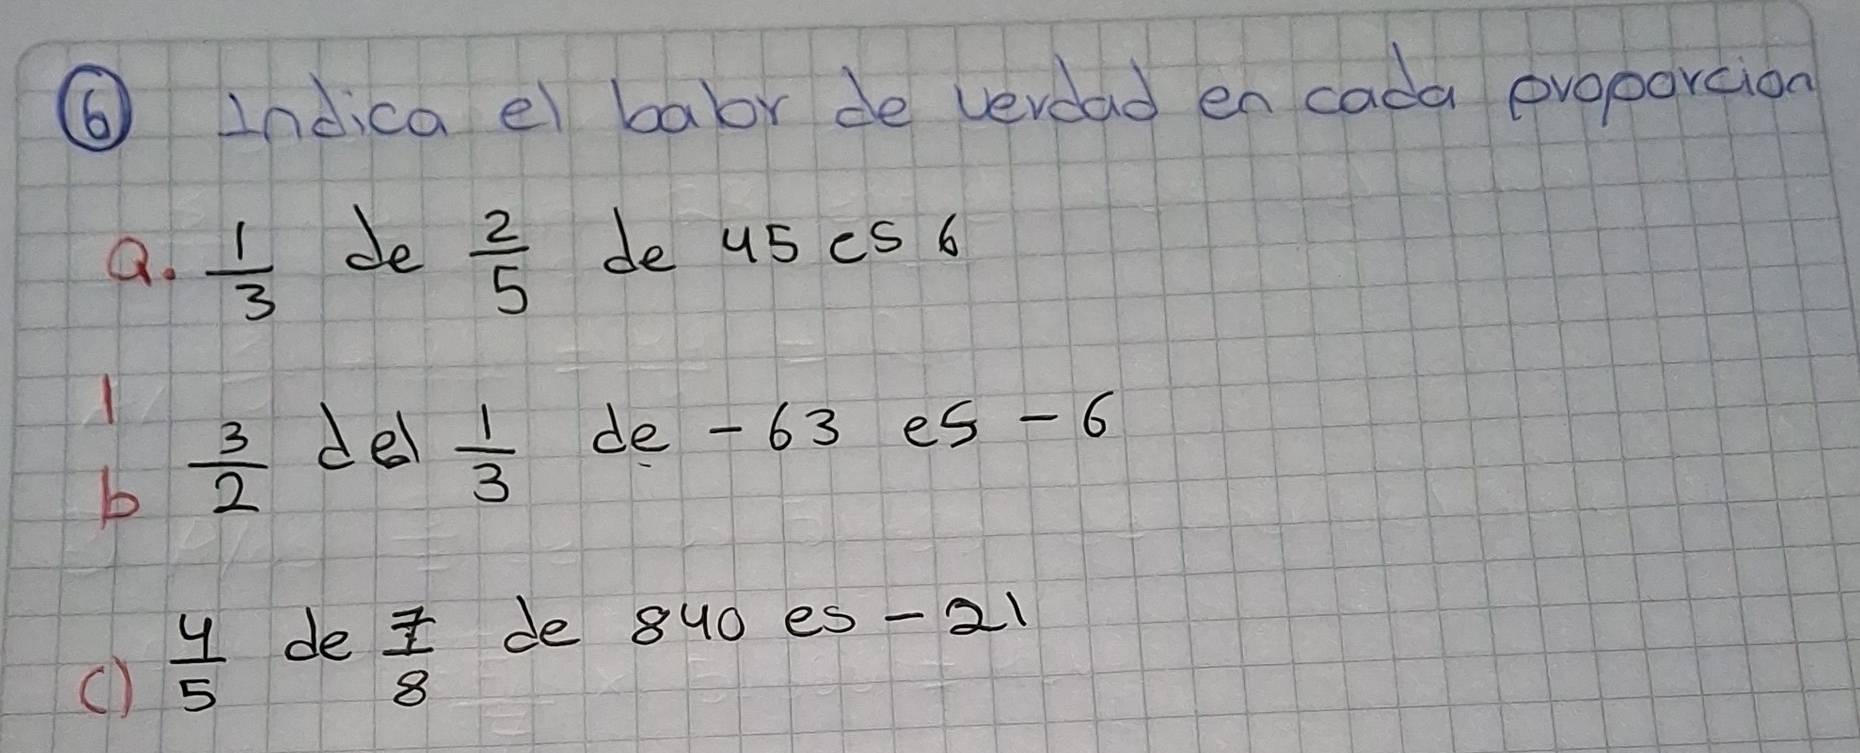 6 Indica el balor de verdad en cada proporcion
a. 1/3 de 2/5 de 45 es 6
1
b 3/2 del 1/3 de -63 es -6
c) 4/5 de 7/8 de 840 es -21